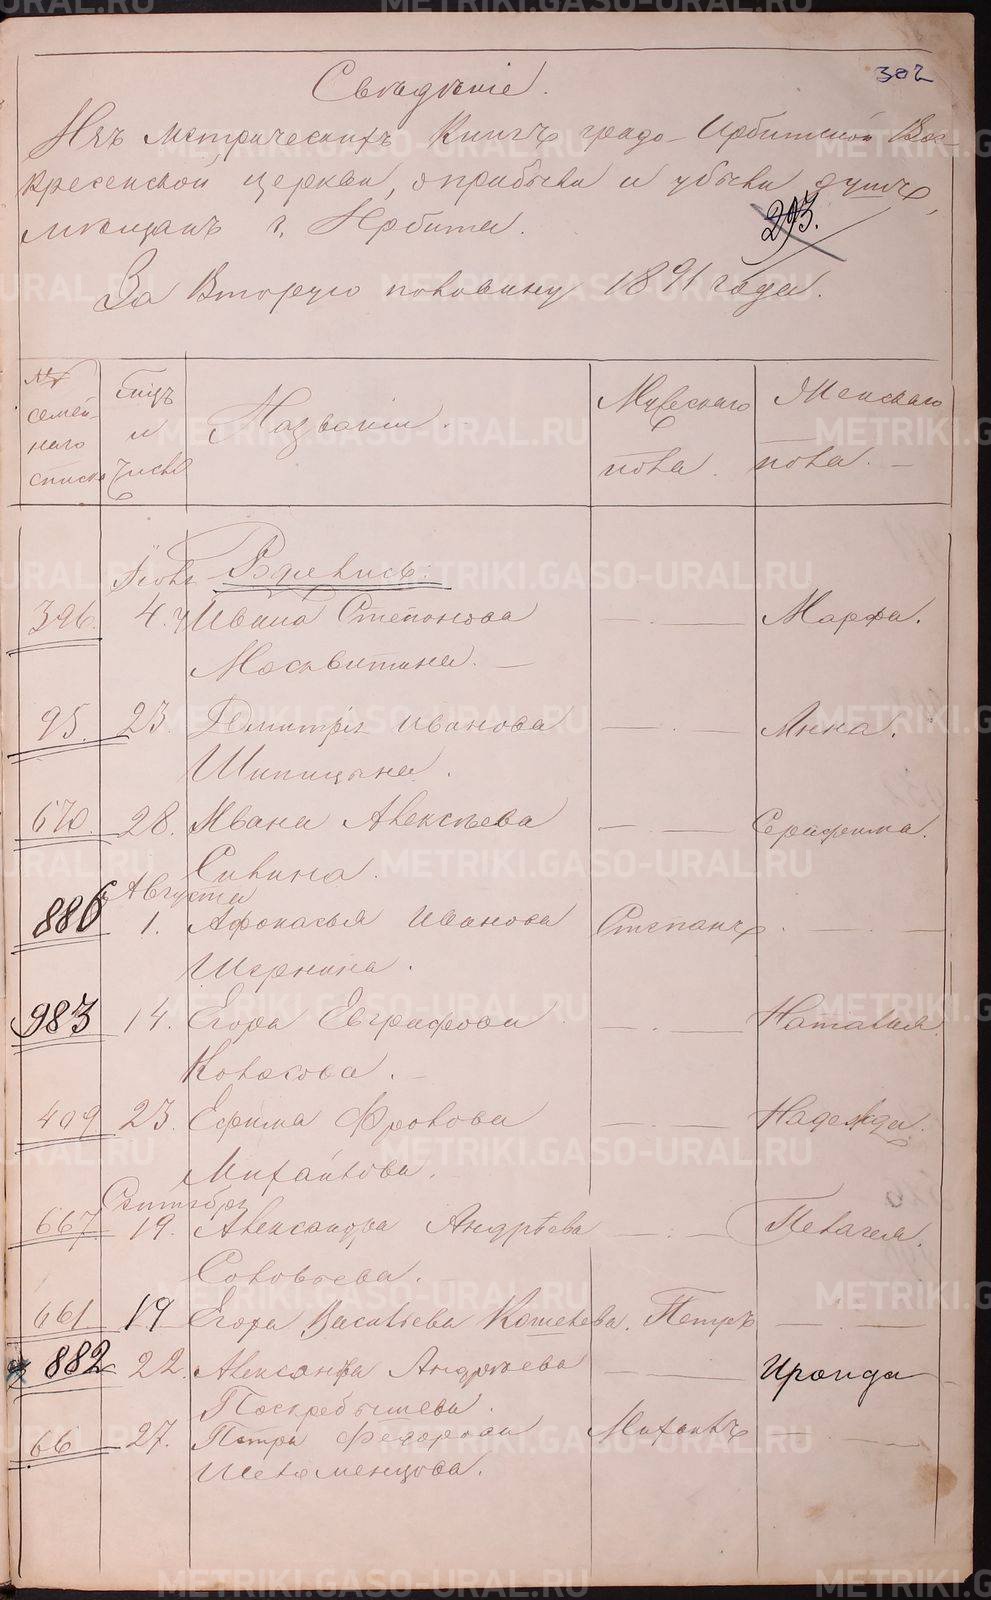 302
Свѣдѣніе.
Изъ метрическихъ книгъ градо-Ирбитской Вос-
кресенской церкви, о прибыли и убыли душъ
мѣщанъ г. Ирбита.
293.
За вторую половину 1891 года.
№ семей- наго списка
Мѣсяцъ и число
Названіе.
Мужескаго пола.
Женскаго пола.
Родились:
Іюль
396. 4. У Ивана Степанова — Марфа.
Москвитина.
95. 23. Дмитрія Иванова — Анна.
Шипицына.
670. 28. Ивана Алексѣева — Серафима.
Сивина.
Августа
886 1. Афонасья Иванова Степанъ. —
Шернина.
983 14. Егора Евграфова — Наталья.
Колосова.
409 23. Ефима Фролова — Надежда.
Михайлова.
Сентябрь
667 19. Александра Андрѣева — Пелагея.
Соловьева.
661 19 Егора Васильева Кошелева. Петръ —
882 22. Александра Андрѣева — Ироида
Поскребышева.
66 27. Петра Федорова Михаилъ —
Шеломенцова.
METRIKI.GASO-URAL.RU